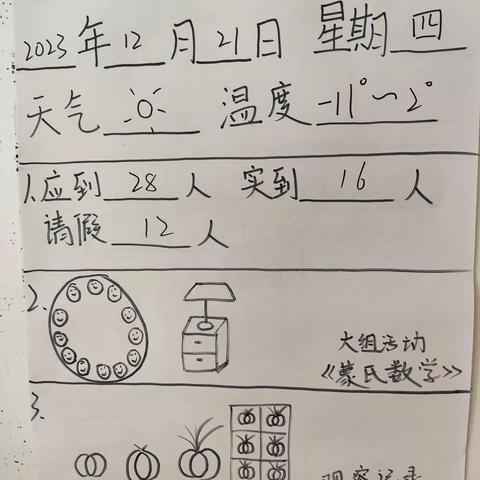 2023年12月21日 星期四
天气 温度-11°~2°
1.应到28人 实到16人
请假12人
2.
大组活动
《蒙氏数学》
3.
观察记录